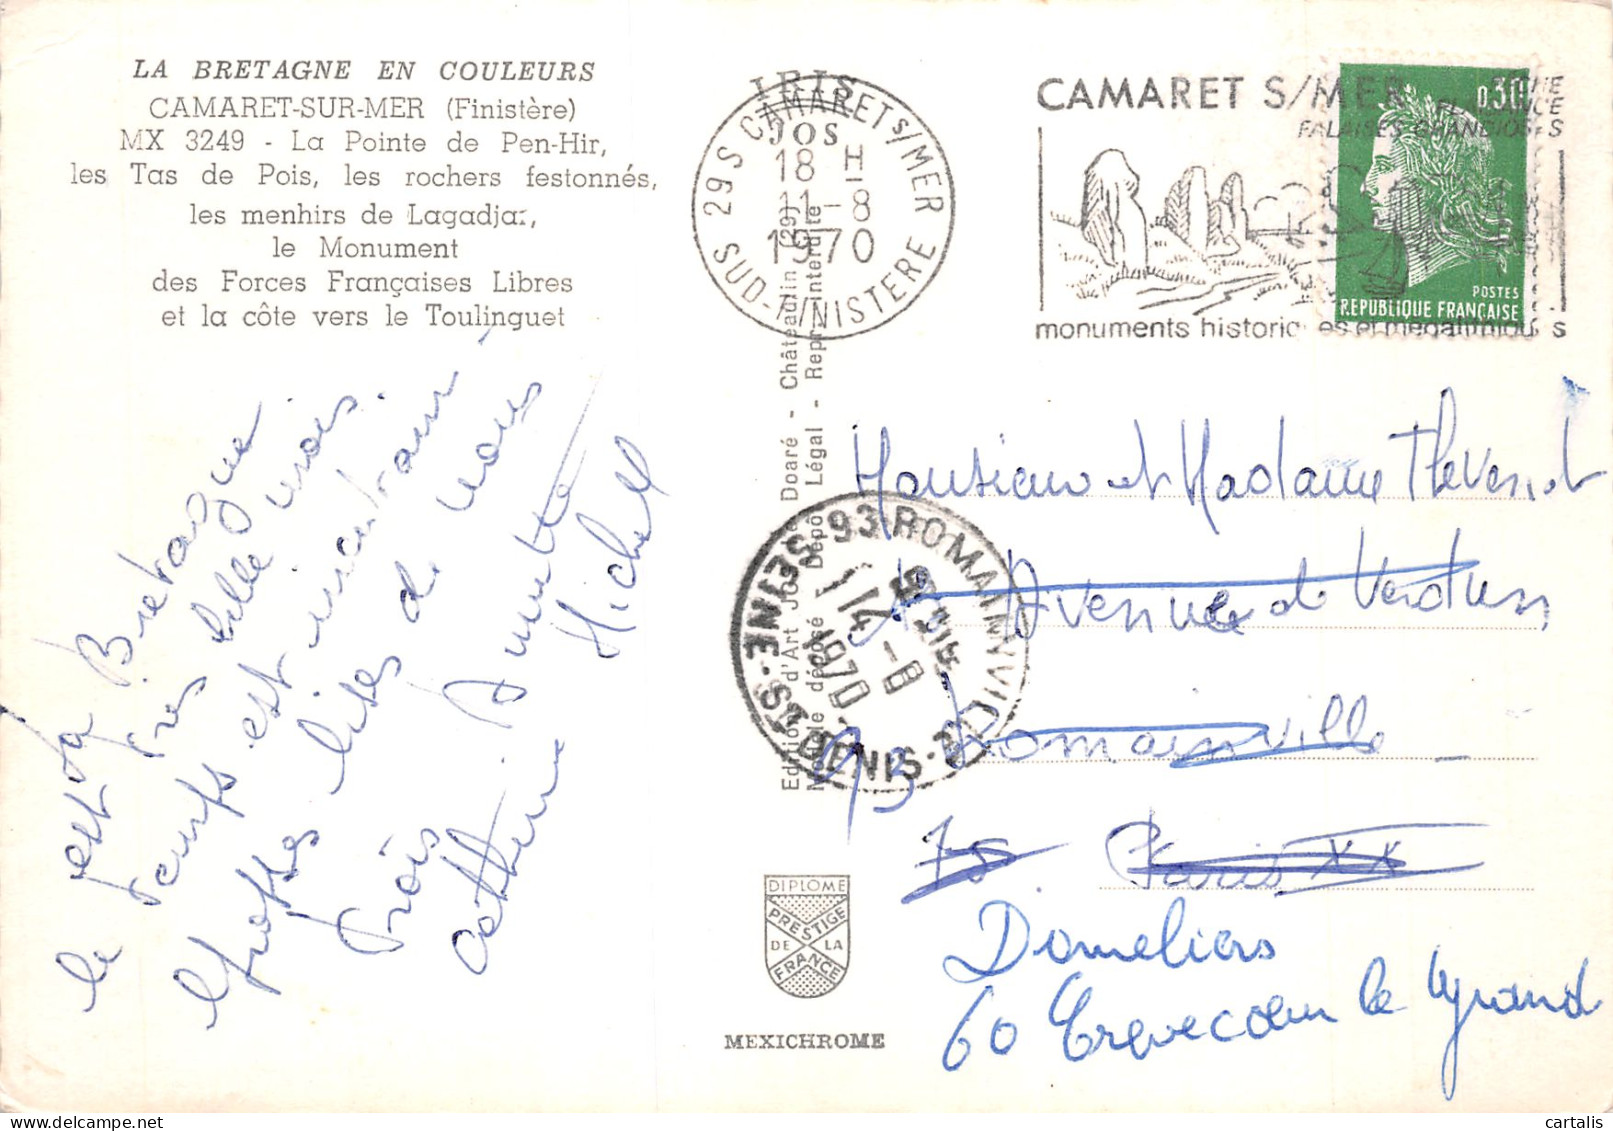 LA BRETAGNE EN COULEURS
CAMARET-SUR-MER (Finistère)
MX 3249 - La Pointe de Pen-Hir,
les Tas de Pois, les rochers festonnés,
les menhirs de Lagadjar,
le Monument
des Forces Françaises Libres
et la côte vers le Toulinguet
la Bretagne
est très belle mais
le temps est
Grosses bises de nous
trois
Amitié
Michel
IRIS
JOS
29 S CAMARET S/MER
18 H
11-8
1970
SUD-FINISTERE
CAMARET S/MER
FALAISES GRANDIOSES
monuments historiques et mégalithiques
0,30
POSTES
REPUBLIQUE FRANÇAISE
Editions d'Art JOS le Doaré - Châteaulin (29)
Modèle déposé - Dépôt Légal - Repr. interdite
93 ROMAINVILLE
14-8
1970
SEINE-ST-DENIS
Monsieur et Madame Thevenot
Avenue de Verdun
93 Romainville
75. Paris XX
Domeliers
60 Crevecoeur le Grand
DIPLÔME
PRESTIGE
DE LA
FRANCE
MEXICHROME
cartalis